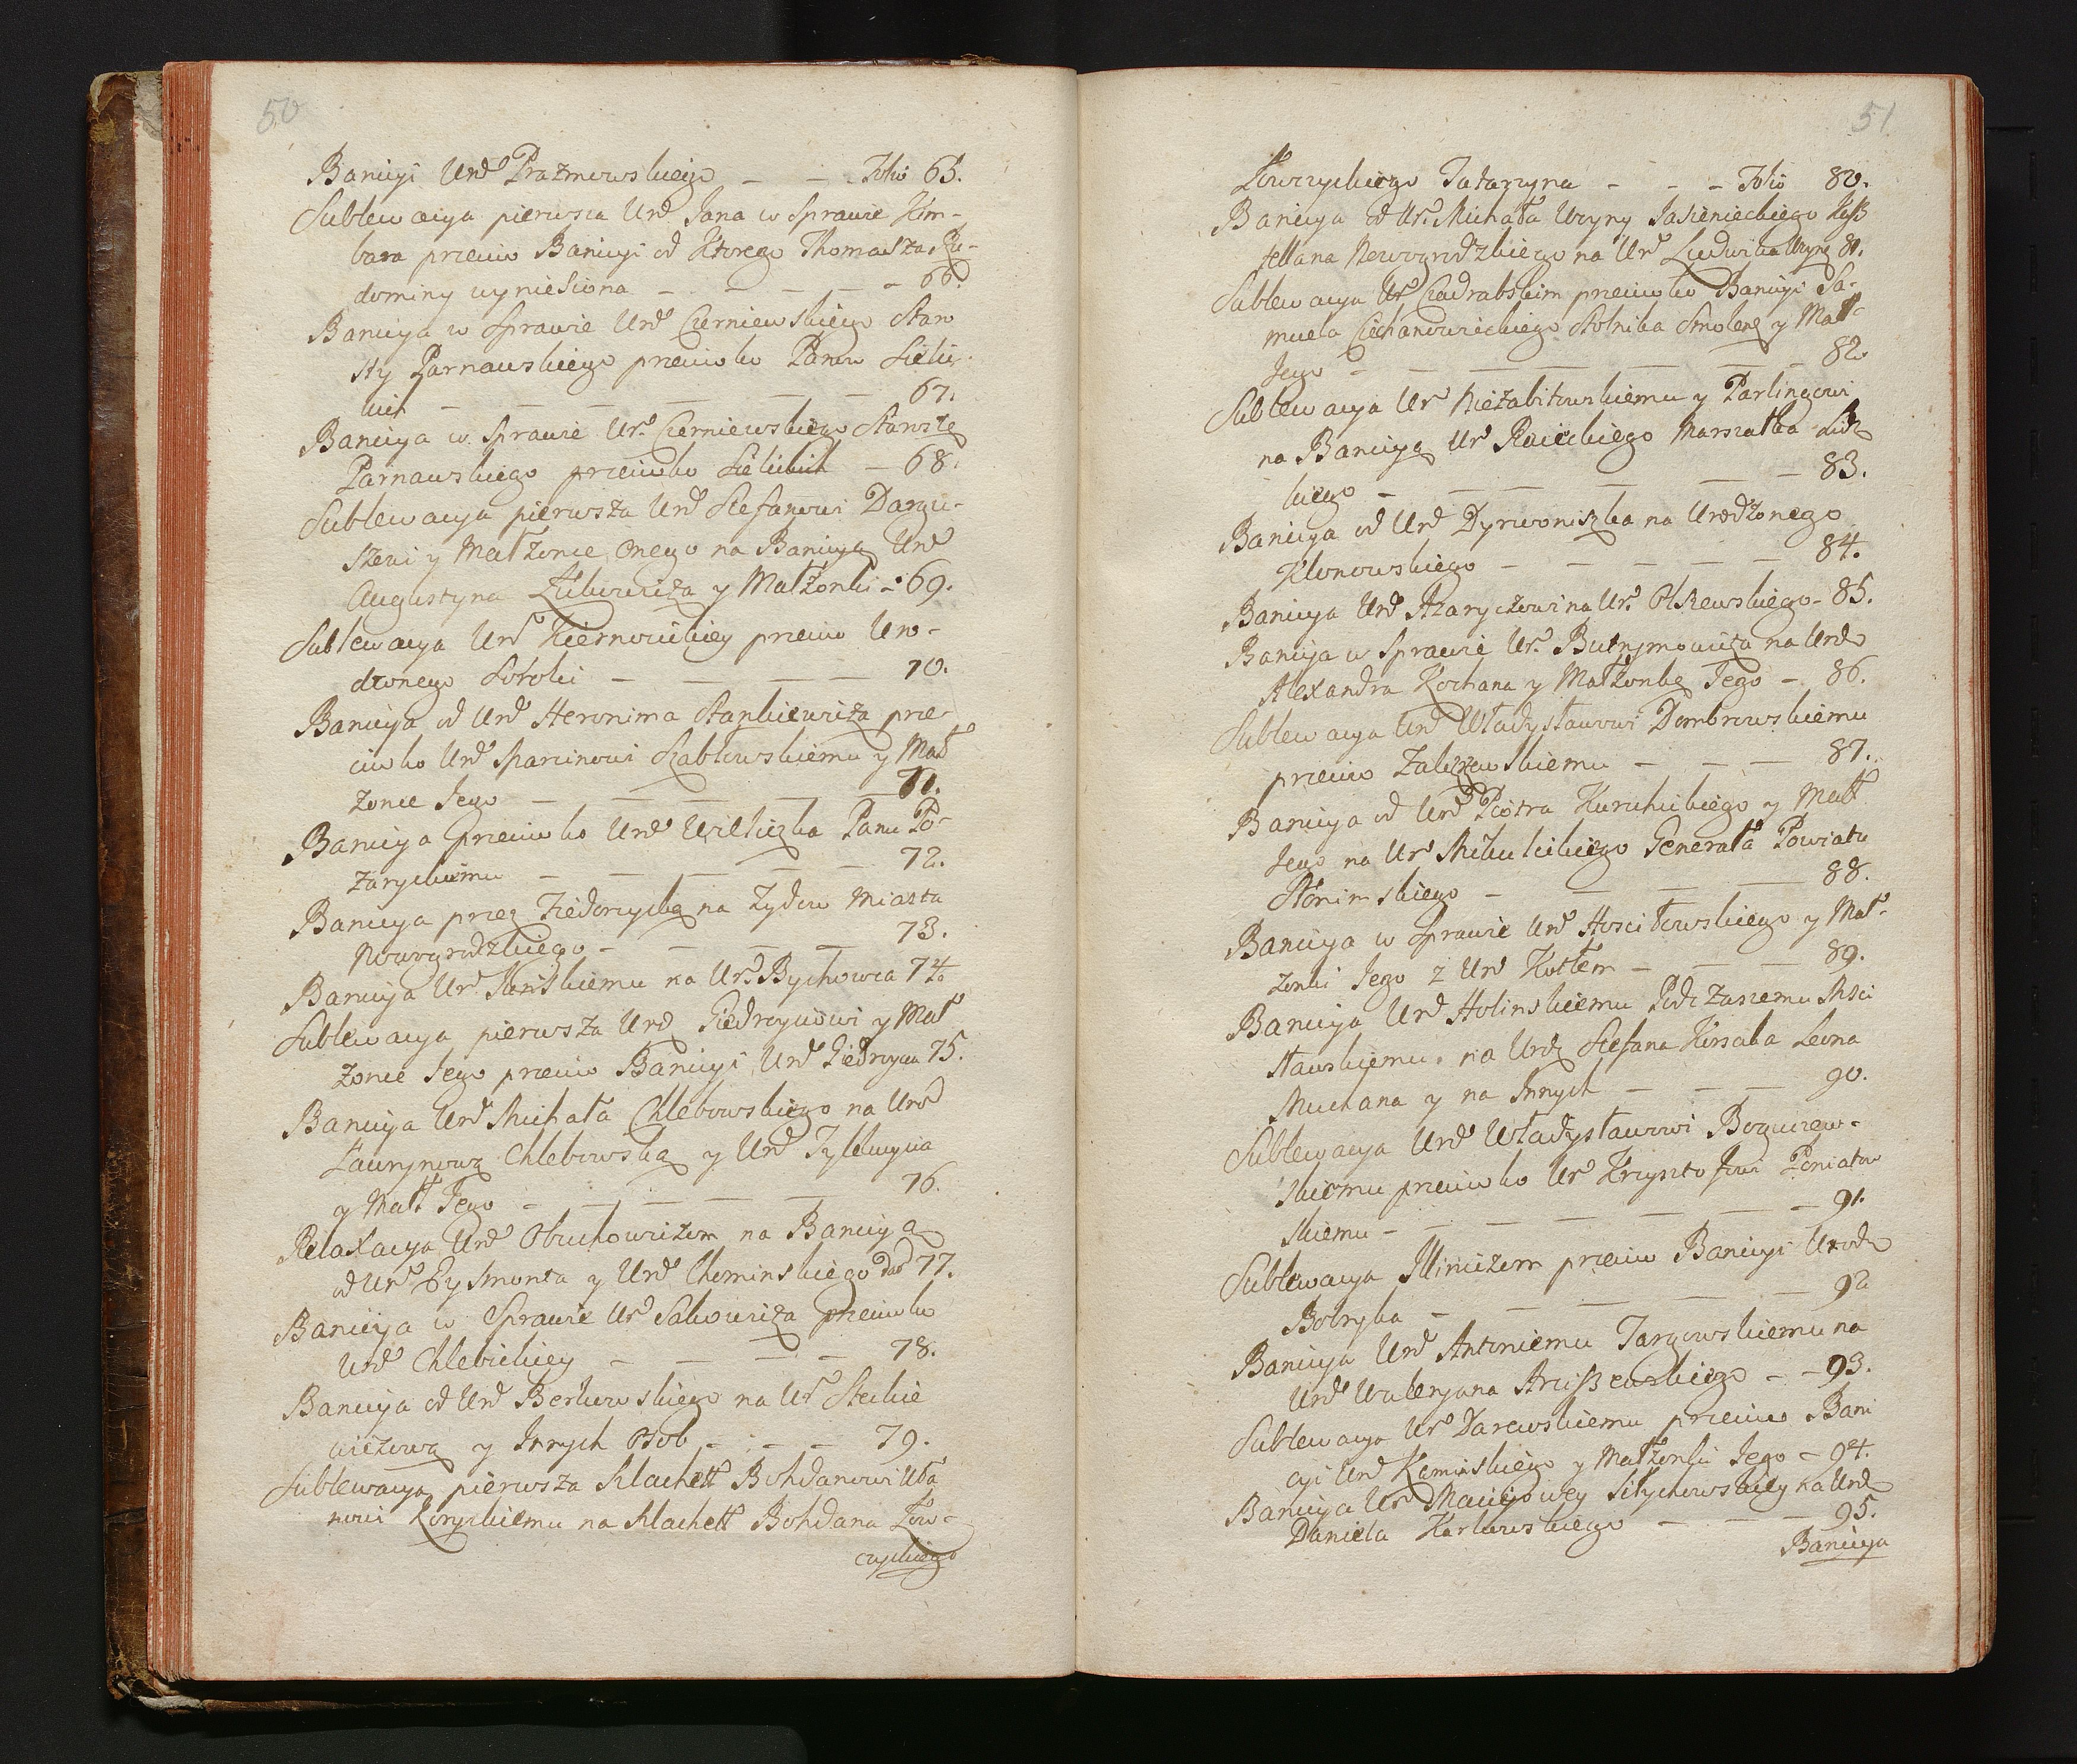 50
Banicyi Urd Prazmowskiego — — Folio 65.
Sublewacya pierwsza Urd Jana w Sprawie Kim-
bara przeciw Banicyi od Ktorego Thomasza Ru-
dominy wyniesiona — — — — — 66.
Banicya w Sprawie Urd Czerniewskiego Staro
sty Parnawskiego przeciwko Panow Sielic
kich — — — — — — 67.
Banicya w Sprawie Ur. Czerniewskiego Starostę
Parnawskiego przeciwko Sielickich — 68.
Sublewacya pierwsza Urd Stefanowi Dargu-
szewi y Małżonce onego na Banicyą Urd
Augustyna y Małżonki — 69.
Sublewacya Urd Kiernowickiey przeciw Uro-
dzonego Sokoli — — — — 70.
Banicya od Urd Heronima Stankiewicza prze-
ciwko Urd Marcinowi Szabłowskiemu y Mał
żonce Jego — — — — 71.
Banicya przeciwko Urd Wilczka Panu Po-
żaryckiemu — — — — — 72.
Banicya przez Fiedorczykę na Zydow Miasta
Nowogrodzkiego — — — — 73.
Banicya Ur. na Ur. Bychowca 74.
Sublewacya pierwsza Urd Giedroyciowi y Mał
żonce Jego przeciw Banicyi Urd Giedroycia 75.
Banicya Urd Michała Chlebowskiego na Urod
Ławrynową Chlebowską y Urd
y Małł Jego — — — — 76.
Relaxacya Urd Obuchowiczom na Banicyą
od Ur Eysmonta y Urd Cheminskiego 77.
Banicya w Sprawie Ur Sakowicza przeciwko
Urd Chlewickiey — — — — 78.
Banicya od Urd Berkowskiego na Ur Steckie
wiczową y Innych Osob — — — 79.
Sublewacya pierwsza Szlachett Bohdanowi Uła
nowi Koryckiemu na Szlachett Bohdana Łow-
czyckiego
51
Łowczyckiego Tatarzyna — — — Folio 80.
Banicya od Ur. Michała Woyny Jasienieckiego Kasz
tellana Nowogrodzkiego na Urd Ludwika Woynę 81.
Sublewacya Ur Czadrabskim przeciwko Banicyi Sa-
muela Ciechanowieckiego Stolnika Smolens y Małł
Jego — — — — — — 82.
Sublewacya Ur Niezabitowskiemu y Parlingowi
na Banicyą Ur Raieckiego Marszałka Lidz
kiego — — — — — — 83.
Banicya od Urd Dyrwoniszka na Urodzonego
Klonowskiego — — — — — 84.
Banicya Urd Azaryczowi na Ur. Olszewskiego — 85.
Banicya w Sprawie Ur. Butrymowicza na Urd
Alexandra Kochana y Małżonkę Jego — 86.
Sublewacya Urd Władysławowi Dombrowskiemu
przeciw Zaleskiemu — — — 87.
Banicya od Urd Piotra Kuruckiego y Małł
Jego na Ur Mikulickiego Generała Powiatu
Słonimskiego — — — — 88.
Banicya w Sprawie Urd Hosciłowskiego y Mał-
żonki Jego z Urd Kotłem — — — 89.
Banicya Urd Holinskiemu Podczaszemu Msci
sławskiemu na Urdz Stefana Korsaka Leona
Muchana y na Innych — — — 90.
Sublewacya Urd Władysławowi Boguszew-
skiemu przeciwko Ur Krzysztofowi Poniatow
skiemu — — — — — — 91.
Sublewacya Iliniczom przeciw Banicyi Urodz
Bobryka — — — — — 92
Banicya Urd Antoniemu Targowskiemu na
Urd Waleryana Arciszewskiego — — 93.
Sublewacya Ur Darewskiemu przeciw Bani
cyi Urd Kaminskiego y Małżonki Jego — 94.
Banicya Ur Maciejowey Siłychowskiey na Urd
Daniela Karkowskiego — — — 95.
Banicya